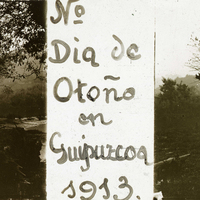 Nº
Dia de
Otoño
en
Guipuzcoa
1913.